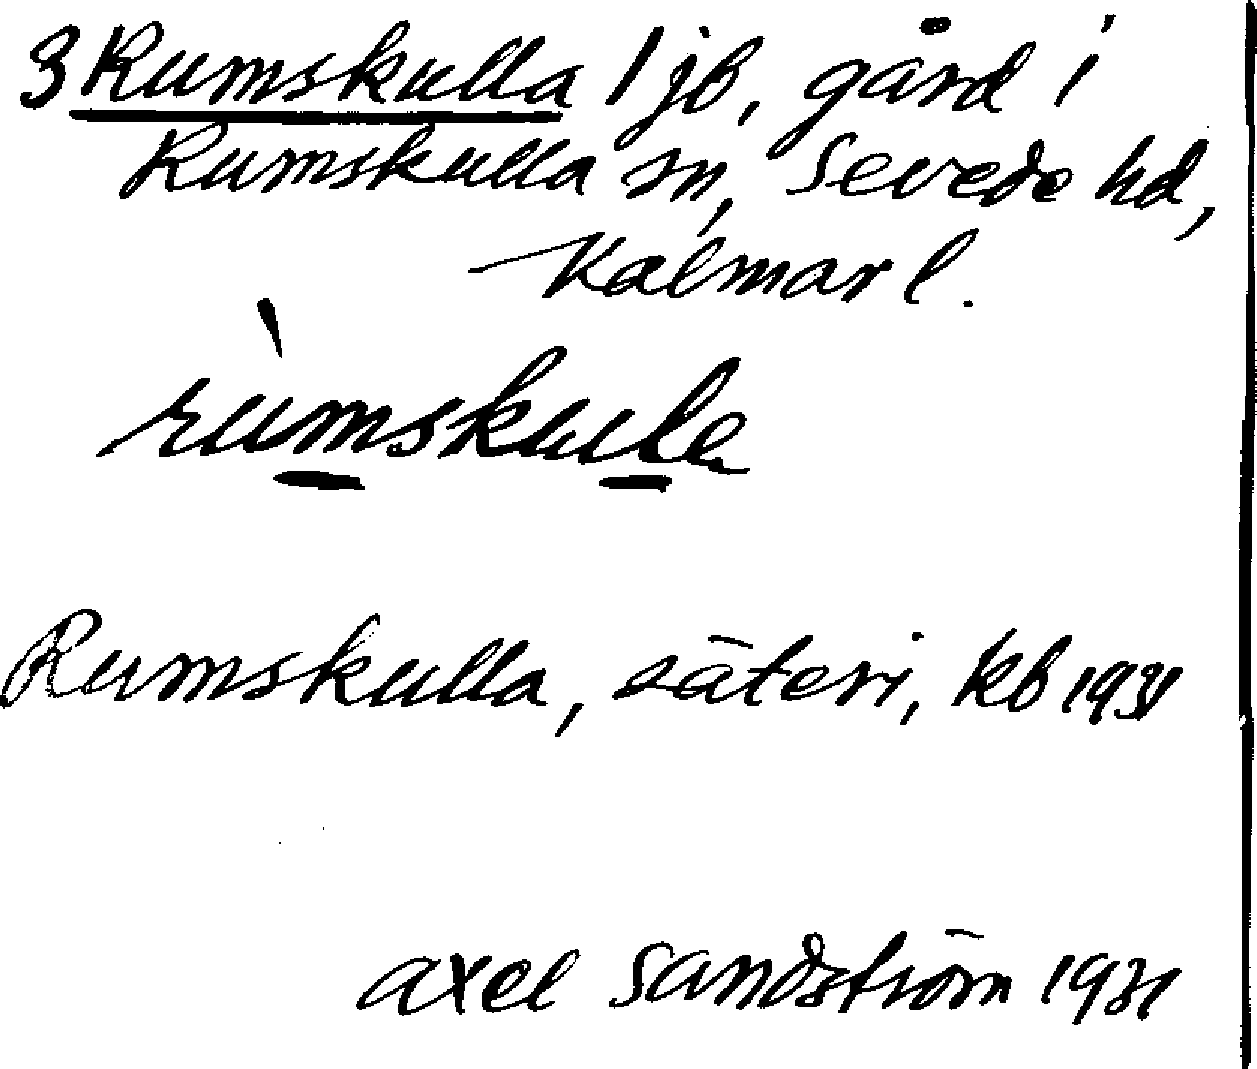 3 Rumskulla 1 jb, gård i
Rumskulla sn, Sevede hd,
Kalmar l.
rùmskula
Rumskulla, säteri, kb 1931
axel Sandström 1931